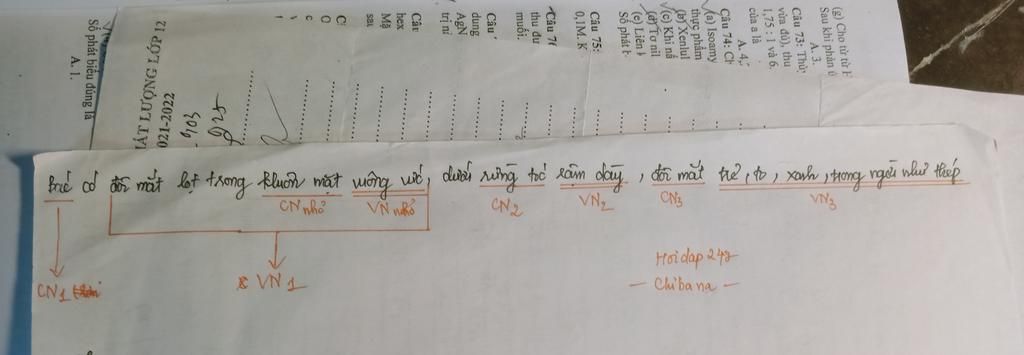 (g) Cho từ từ
Sau khi phản ứ
A. 3.
Câu 73: Thủy
vừa đủ), thu
1,75 : 1 và 6.
của a là
A. 4,
Câu 74: Ch
(a) Isoamy
thực phẩm
(b) Xenlul
(c) Khi nấ
(d) Tơ nil
(e) Liên k
Số phát b
Câu 75:
0,1M, K
Câu 76
thu đu
muối.
Câu
dung
AgN
trị nà
Câu
hex
Mặ
sau
C
O
c
HẤT LƯỢNG LỚP 12
021-2022
Số phát biểu đúng là
A. 1.
trẻ có đôi mắt lọt trong khuôn mặt vuông vức, dưới rừng tóc rậm dày, đôi mắt trẻ, to, xanh, trong ngời như thép
CN nhỏ VN nhỏ CN2 VN2 CN3 VN3
CN1 VN1
Hoidap247
- Chibana -